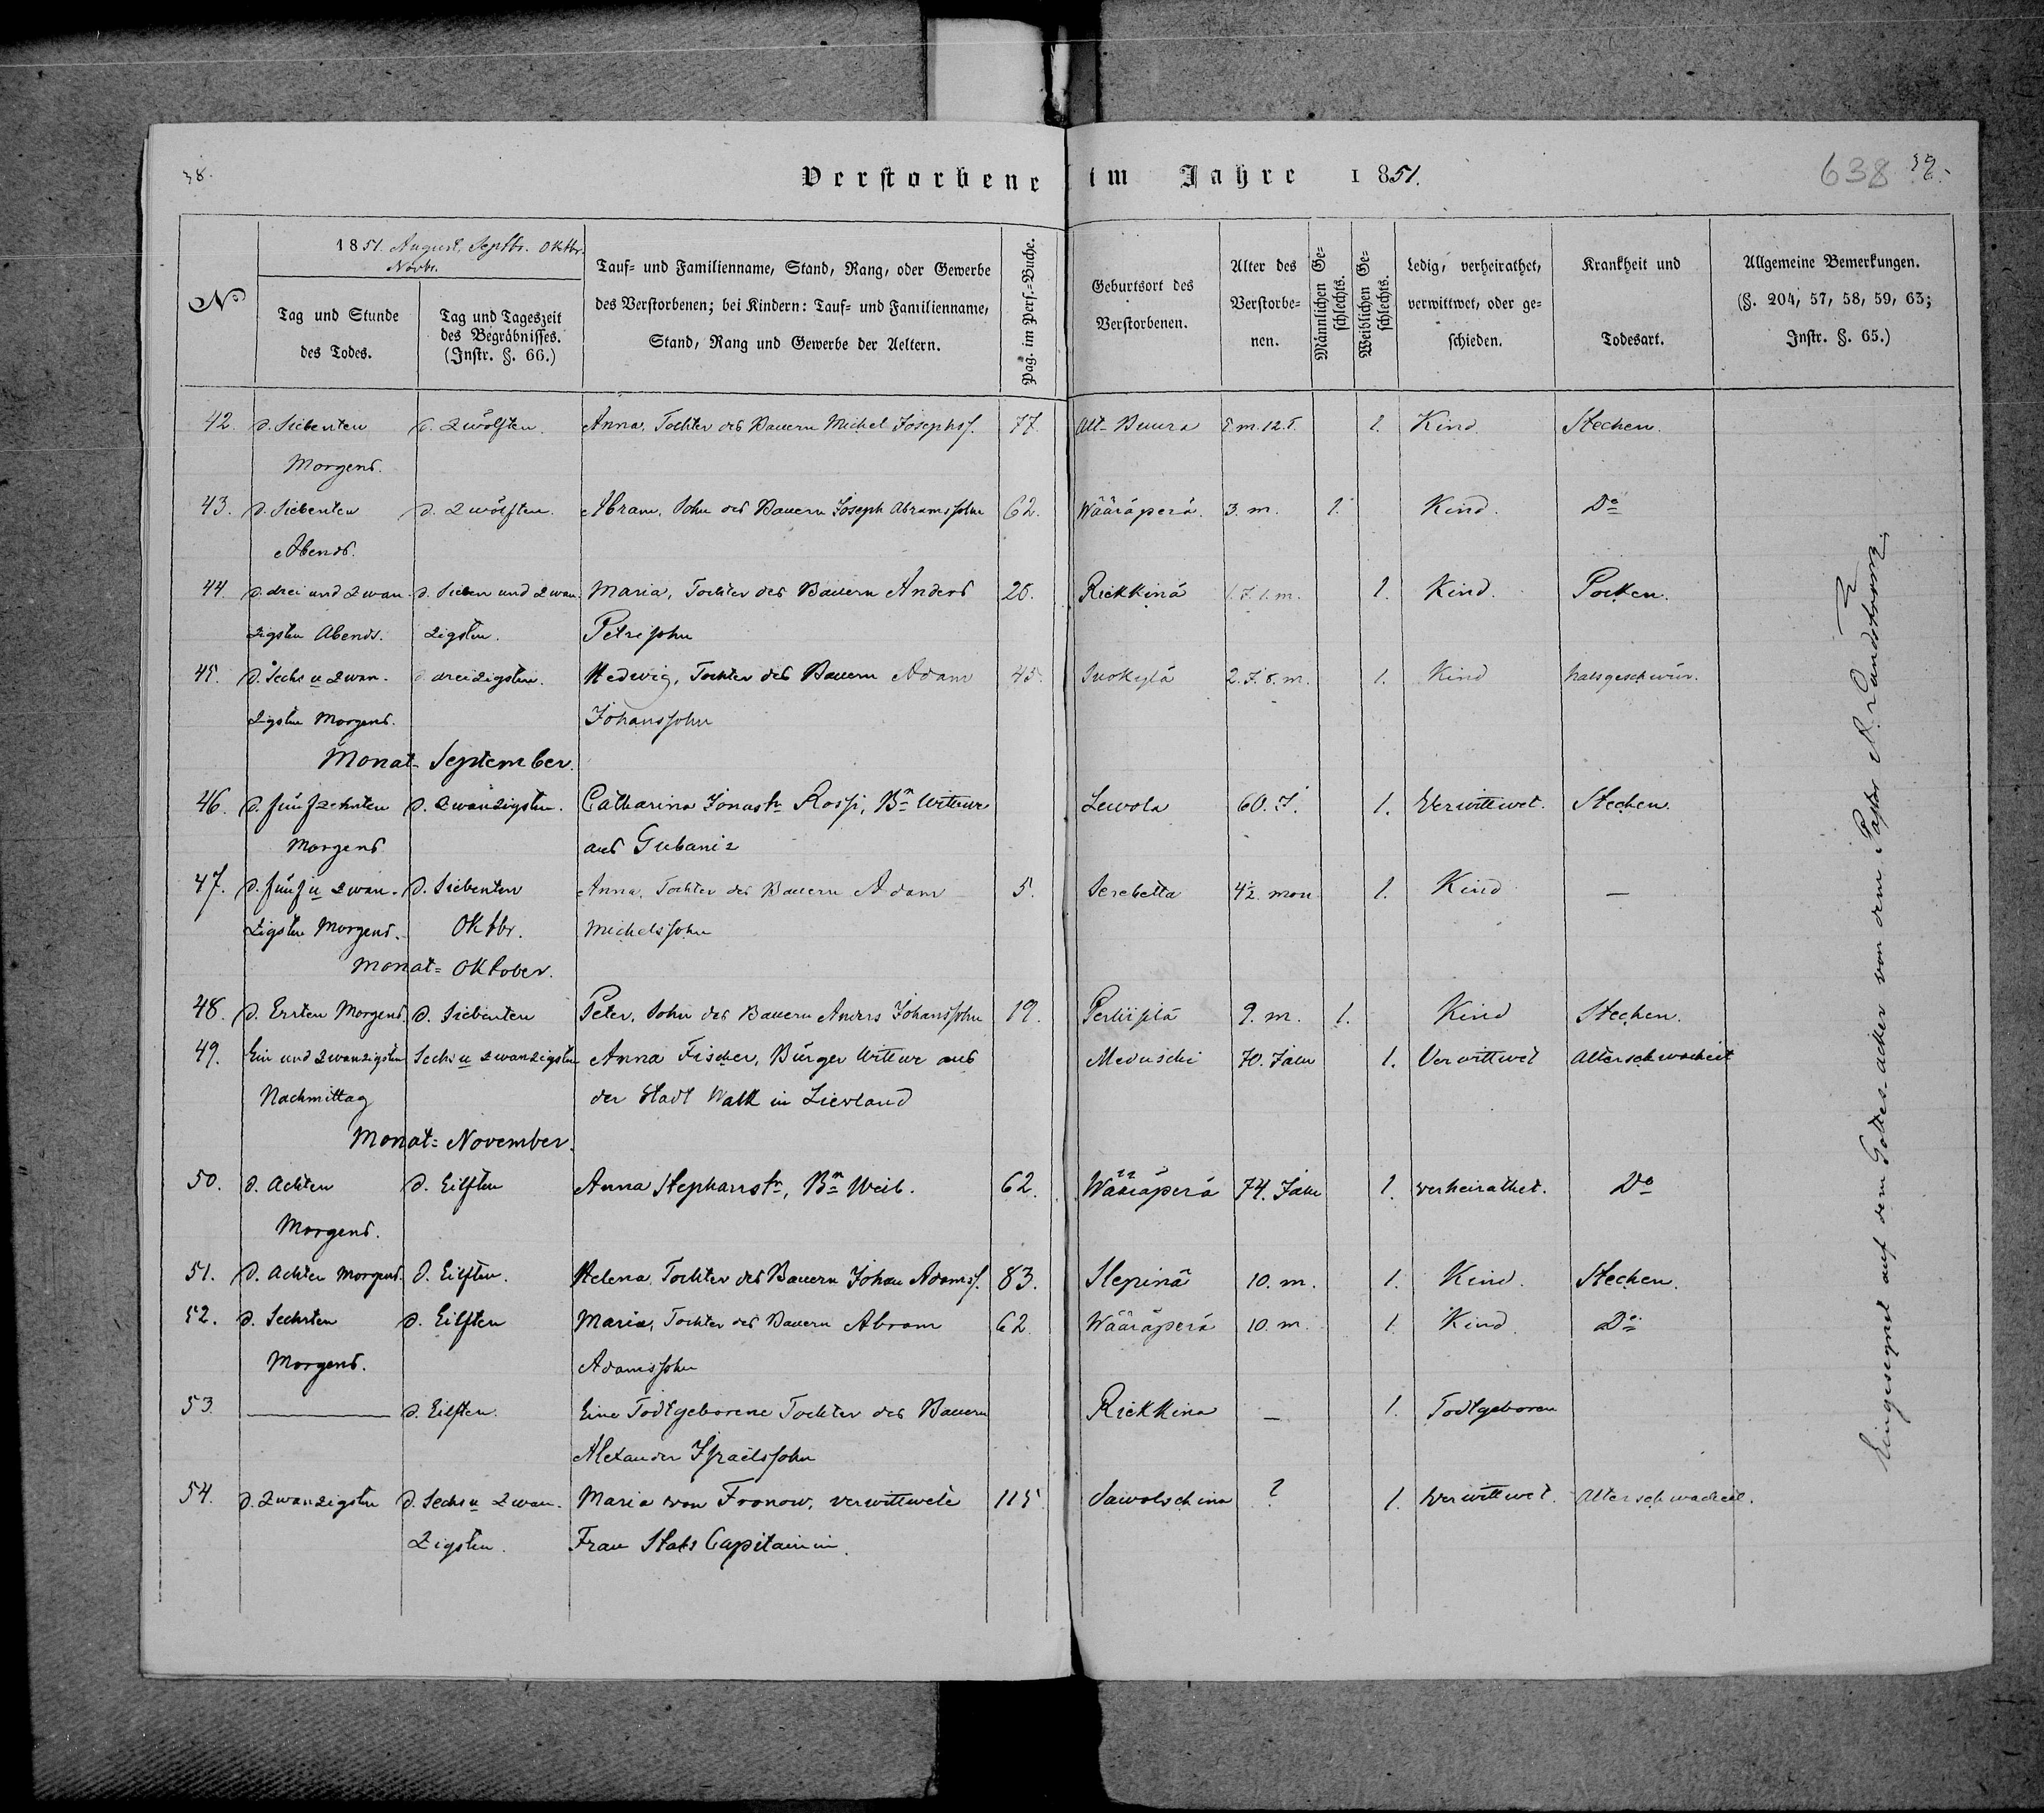 38.
Verstorbene im Jahre 1851.
638
39.
№
1851. August, Septbr. Oktbr.
Novbr.
Tag und Stunde
des Todes.
Tag und Tageszeit
des Begräbnisses.
(Instr. §. 66.)
Tauf- und Familienname, Stand, Rang, oder Gewerbe
des Verstorbenen; bei Kindern: Tauf- und Familienname,
Stand, Rang und Gewerbe der Aeltern.
Pag. im Pers.-Buche.
Geburtsort des
Verstorbenen.
Alter des
Verstorbe-
nen.
Männlichen Ge-
schlechts.
Weiblichen Ge-
schlechts.
Ledig, verheirathet,
verwittwet, oder ge-
schieden.
Krankheit und
Todesart.
Allgemeine Bemerkungen.
(§. 204, 57, 58, 59, 63;
Instr. §. 65.)
42. d. Siebenten d. Zwölften. Anna, Tochter des Bauern Michel Josephs. 77. Alt-Buura m. 12. T. 1. Kind. Stechen.
Morgens.
43. d. Siebenten d. Zwölften. Abram, Sohn des Bauern Joseph Abramssohn 62. Wääräperä. 3. m. 1. Kind. Do
Abends.
44. d. drei und Zwan- d. Sieben und Zwan- Maria, Tochter des Bauern Anders 20. Riekkinä 1. J. 1. m. 1. Kind. Pocken.
zigsten Abends. zigsten. Petrisohn
45. d. Sechs u Zwan- d. dreizigsten. Hedwig, Tochter des Bauern Adam 45. Suokylä 2. J. 8. m. 1. Kind Halsgeschwür.
zigsten Morgens. Johanssohn
Monat- September.
46. d. fünfzehnten d. Zwanzigsten. Catharina Jonastr Rossi, Brn Wittwe Lewola 60. J. 1. Verwittwet. Stechen.
Morgens aus Gubaniz
47. d. fünf u Zwan- d. Siebenten Anna, Tochter des Bauern Adam 5. Serebetta 4½. mon 1. Kind —
zigsten Morgens. Oktbr. Michelssohn
Monat= Oktober.
48. d. Ersten Morgens. d. Siebenten Peter, Sohn des Bauern Anders Johanssohn 19. 9. m. 1. Kind Stechen.
49. Ein und Zwanzigsten Sechs u Zwanzigsten Anna Fischer, Bürger Wittwe aus Meduschi 70. Jahr 1. Verwittwet Alterschwacheit
Nachmittag der Stadt Walk in Lievland
Monat= November.
50. d. Achten d. Eilften Anna Stephanstr, Brn Weib. 62. Wääräperä 74. Jahr 1. verheirathet. Do
Morgens.
51. d. Achten Morgens. d. Eilften. Helena, Tochter des Bauern Johan Adams. 83. Slepinä 10. m. 1. Kind. Stechen.
52. d. Sechsten d. Eilften Maria, Tochter des Bauern Abram 62. Wääräperä 10. m. 1. Kind. Do
Morgens. Adamssohn
53. — d. Eilften. Eine Todtgeborene Tochter des Bauern Riekkina — 1. Todtgeboren
Alexander Israelssohn
54. d. Zwanzigsten d. Sechs u Zwan- Maria von Fronow, verwittwete 115. Sawolschina ? 1. Verwittwet. Alterschwacheit.
zigsten. Frau Stabs Capitainin.
Eingesegnet auf dem Gottes-acker von dem Pastor A. Landström